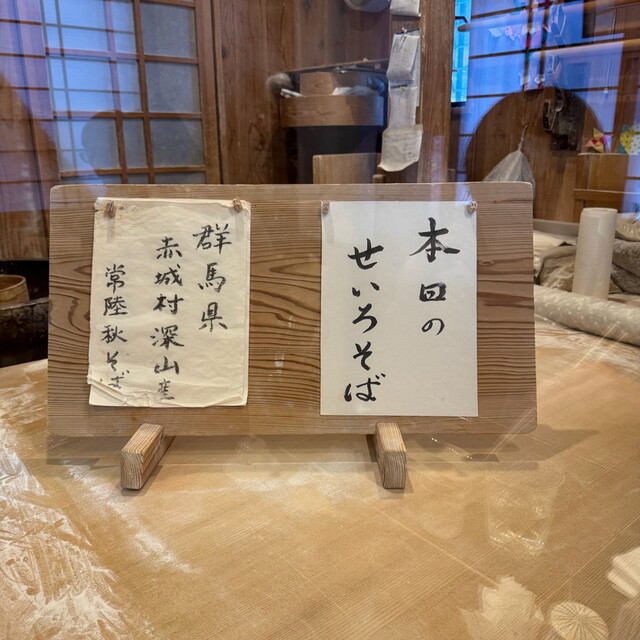 本日の
せいろそば
群馬県
赤城村深山産
常陸秋そば